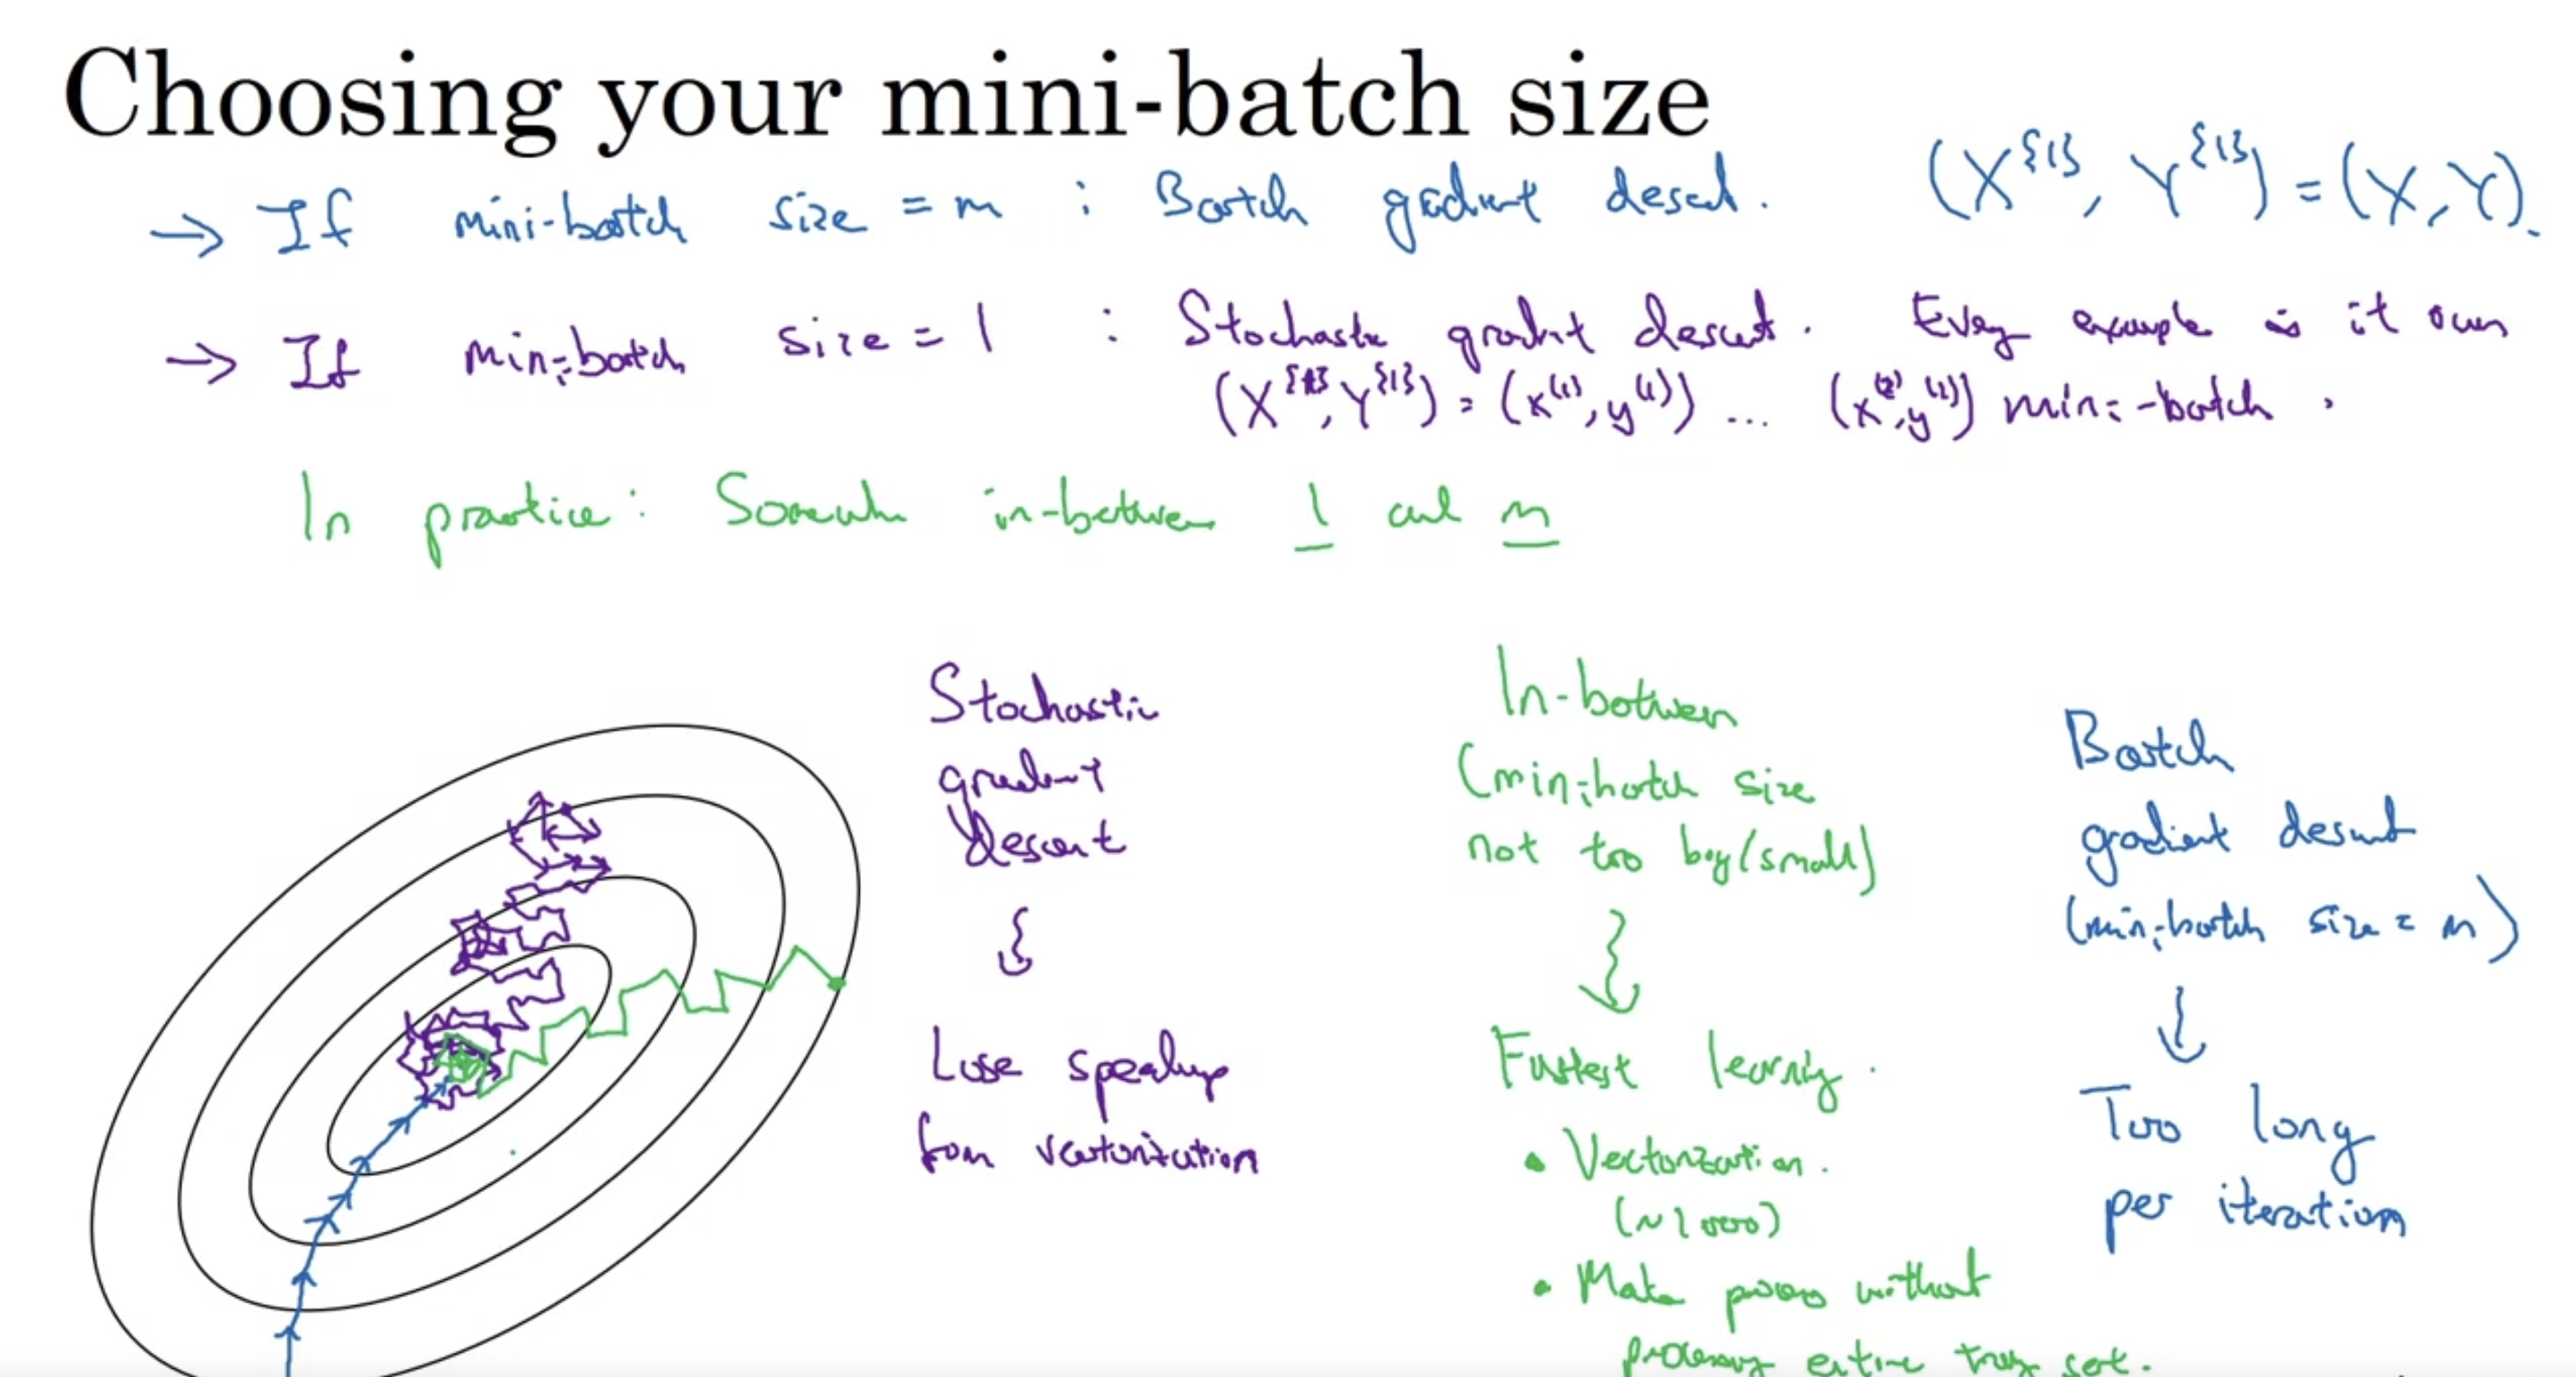 Choosing your mini-batch size
→ If mini-batch size = m : Batch gradient descent. (X^{1}, Y^{1}) = (X, Y).
→ If mini-batch size = 1 : Stochastic gradient descent. Every example is it own
(X^{1}, Y^{1}) = (x^(1), y^(1)) ... (x^(2), y^(2)) mini-batch.
In practice: Somewhere in-between 1 and m
Stochastic
gradient
descent
↓
Lose speedup
from vectorization
In-between
(mini-batch size
not too big/small)
↓
Fastest learning.
• Vectorization.
(~1000)
• Make progress without
processing entire training set.
Batch
gradient descent
(mini-batch size = m)
↓
Too long
per iteration